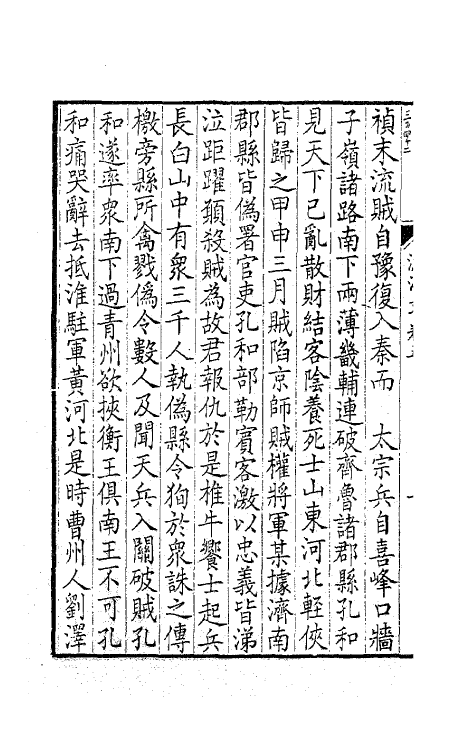 禎末流賊自豫復入秦而　太宗兵自喜峰口牆
子嶺諸路南下兩薄畿輔連破齊魯諸郡縣孔和
見天下已亂散財結客陰養死士山東河北輕俠
皆歸之甲申三月賊陷京師賊權將軍某據濟南
郡縣皆偽署官吏孔和部勒賓客激以忠義皆涕
泣距躍願殺賊為故君報仇於是椎牛饗士起兵
長白山中有衆三千人執偽縣令狥於衆誅之傳
檄旁縣所禽戮僞令數人及聞天兵入關破賊孔
和遂率衆南下過青州欲挾衡王俱南王不可孔
和痛哭辭去抵淮駐軍黃河北是時曹州人劉澤